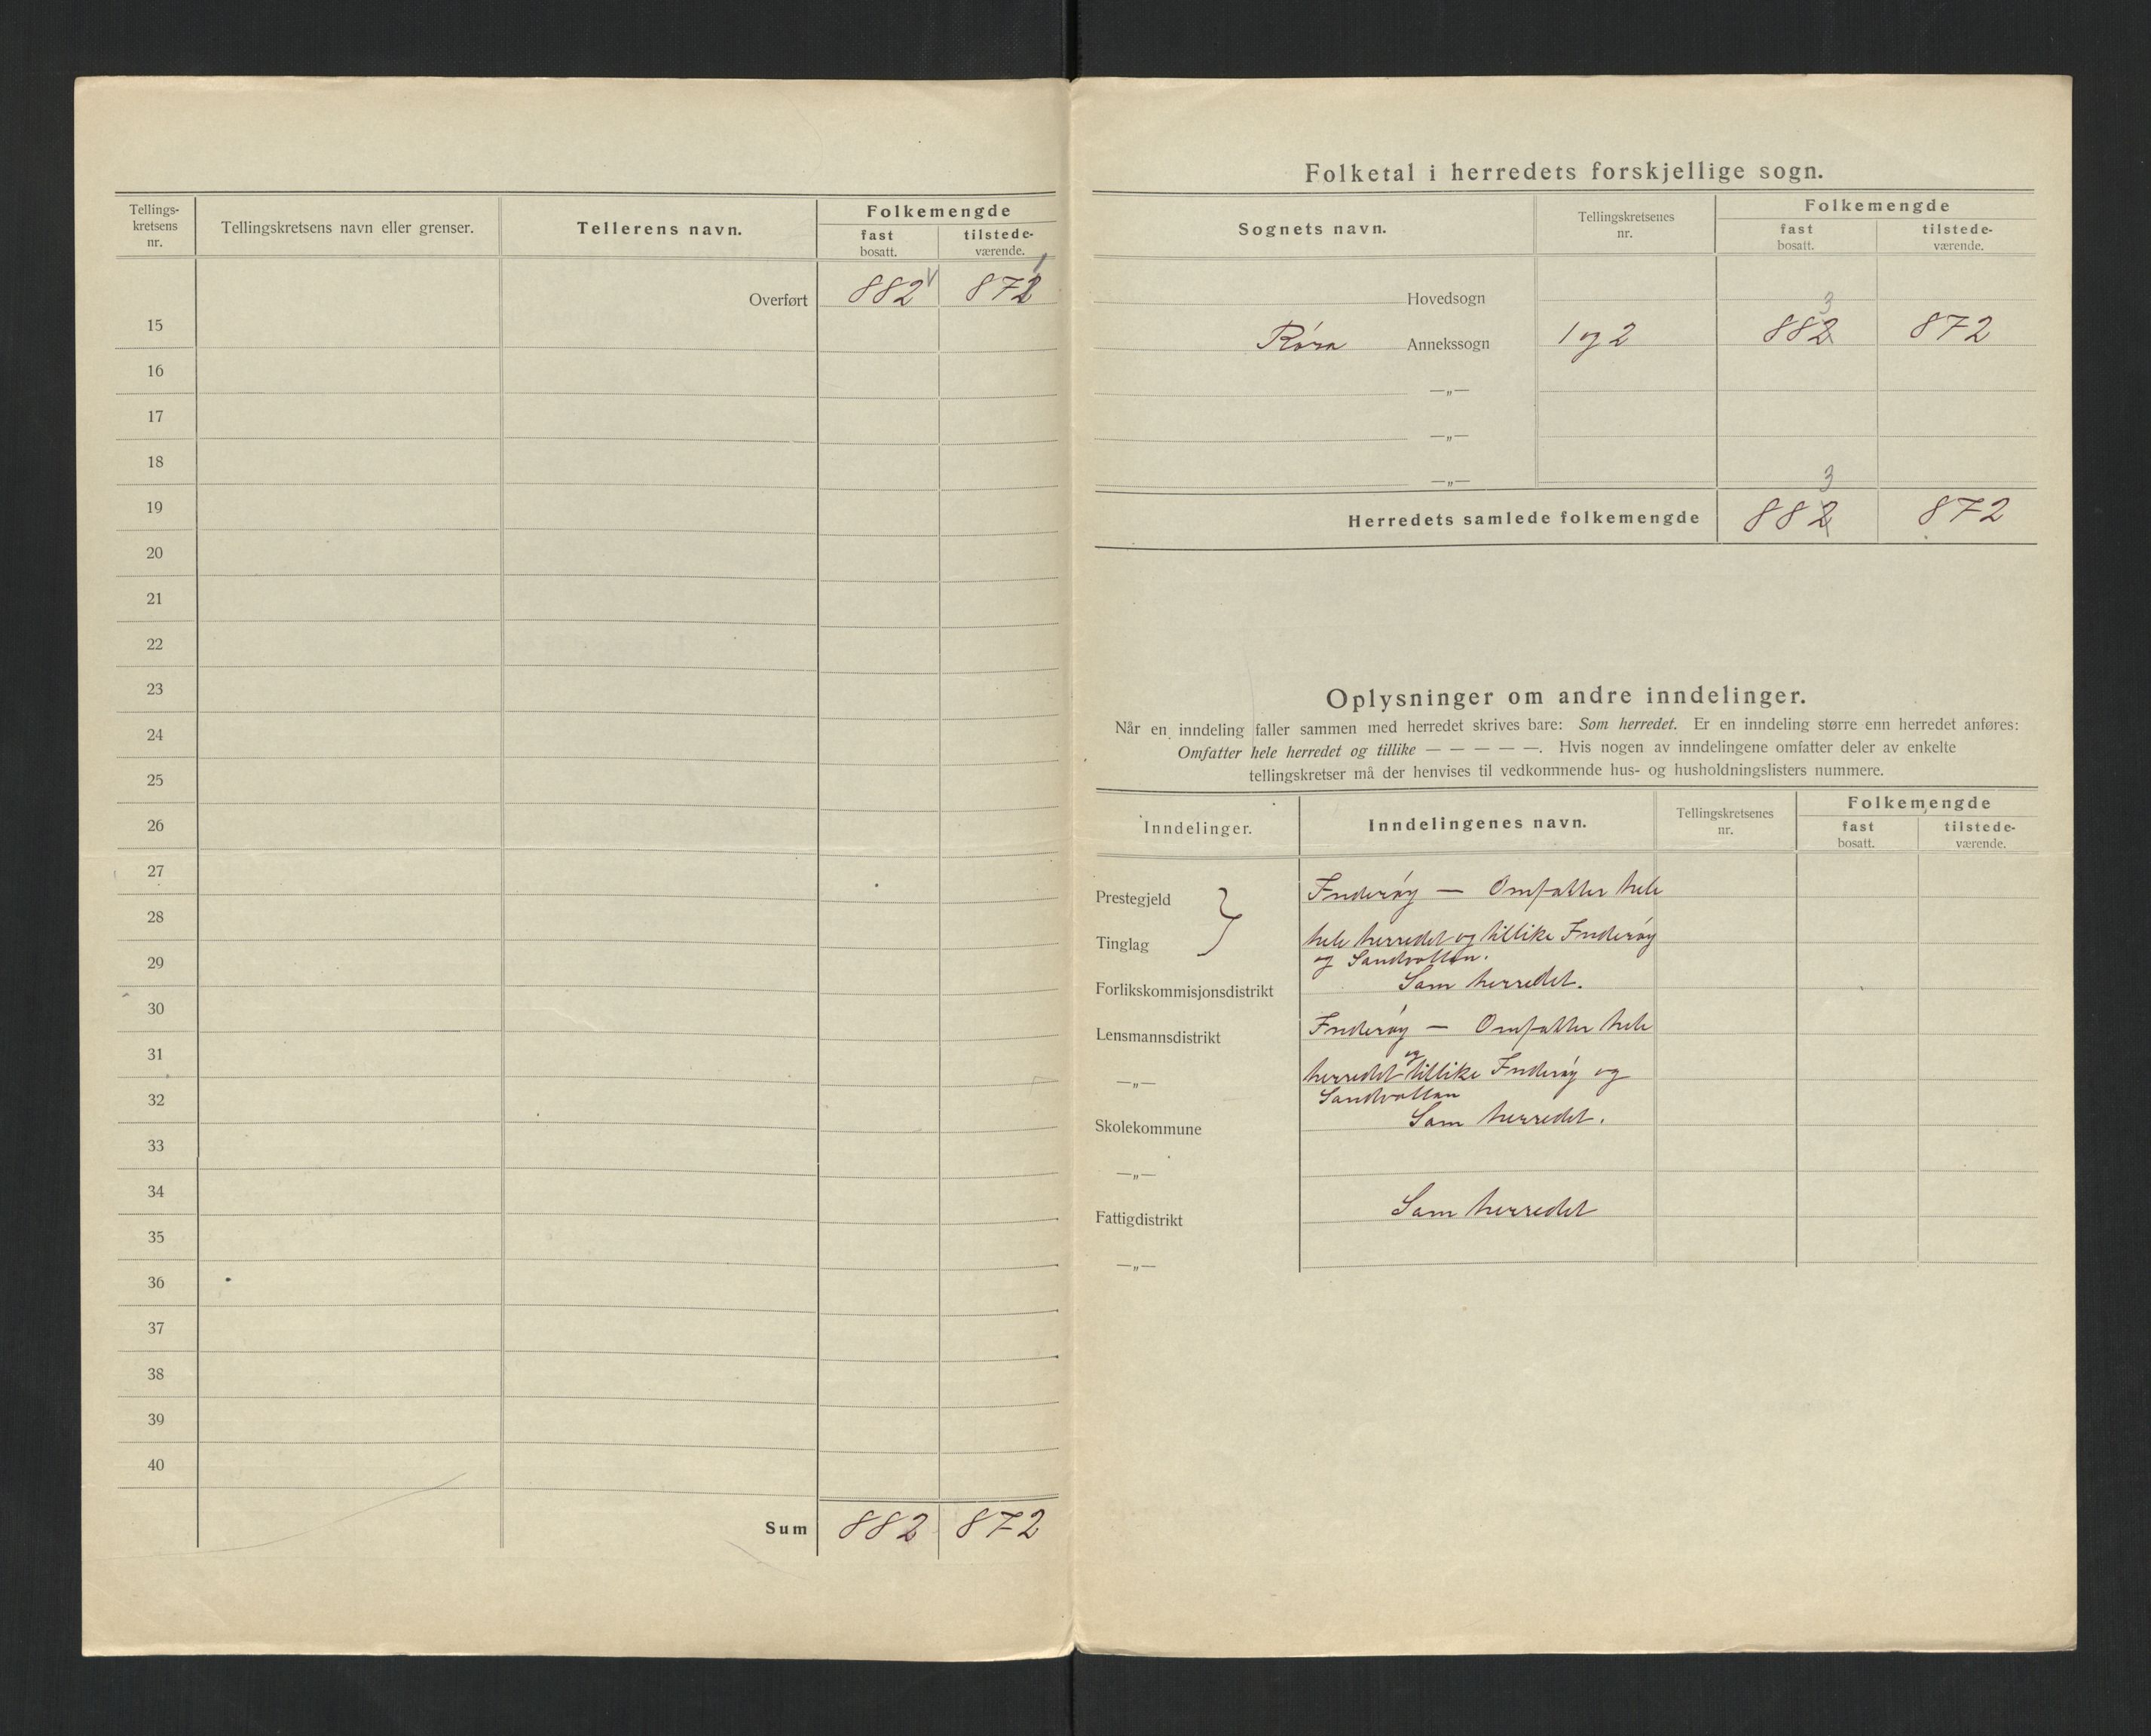 Tellings-
kretsens
nr.
Tellingskretsens navn eller grenser.
Tellerens navn.
Folkemengde
fast
bosatt.
tilstede-
værende.
Overført 882 872
15
16
17
18
19
20
21
22
23
24
25
26
27
28
29
30
31
32
33
34
35
36
37
38
39
40
Sum 882 872
Folketal i herredets forskjellige sogn.
Sognets navn.
Tellingskretsenes
nr.
Folkemengde
fast
bosatt.
tilstede-
værende.
Hovedsogn
3
Røra Annekssogn 1 og 2 882 872
—„—
—„—
—„—
3
Herredets samlede folkemengde 882 872
Oplysninger om andre inndelinger.
Når en inndeling faller sammen med herredet skrives bare: Som herredet. Er en inndeling større enn herredet anføres:
Omfatter hele herredet og tillike — — — — —. Hvis nogen av inndelingene omfatter deler av enkelte
tellingskretser må der henvises til vedkommende hus- og husholdningslisters nummere.
Inndelinger.
Inndelingenes navn.
Tellingskretsenes
nr.
Folkemengde
fast
bosatt.
tilstede-
værende.
Prestegjeld } Inderøy — Omfatter hele
Tinglag hele herredet og tillike Inderøy
og Sandvollan.
Forlikskommisjonsdistrikt Som herredet.
Lensmannsdistrikt Inderøy — Omfatter hele
—„— herredet og tillike Inderøy og
Sandvollan
Skolekommune Som herredet.
—„—
Fattigdistrikt Som herredet
—„—